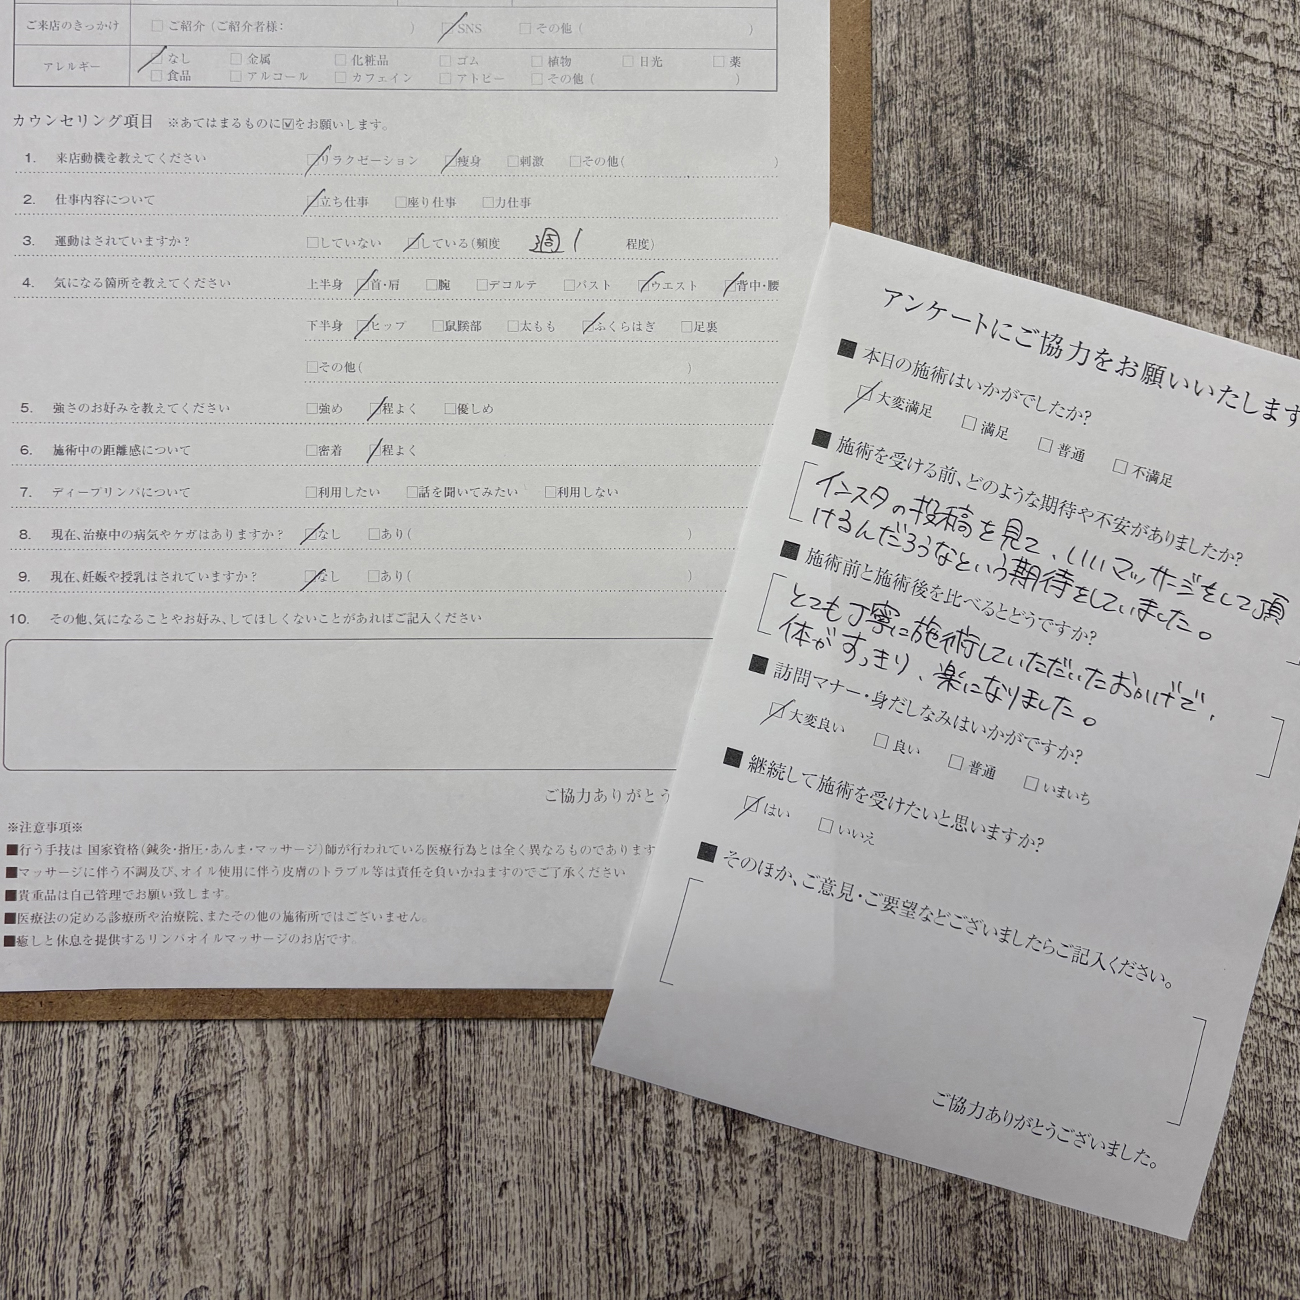 ご来店のきっかけ □ ご紹介（ご紹介者様： ） ☑ SNS □ その他（ ）
アレルギー ☑ なし □ 金属 □ 化粧品 □ ゴム □ 植物 □ 日光 □ 薬
□ 食品 □ アルコール □ カフェイン □ アトピー □ その他（ ）
カウンセリング項目 ※あてはまるものに☑をお願いします。
1. 来店動機を教えてください ☑リラクゼーション ☑痩身 □刺激 □その他( )
2. 仕事内容について ☑立ち仕事 □座り仕事 □力仕事
3. 運動はされていますか？ □していない ☑している(頻度 週1 程度)
4. 気になる箇所を教えてください 上半身 ☑首・肩 □腕 □デコルテ □バスト ☑ウエスト ☑背中・腰
下半身 ☑ヒップ □鼠蹊部 □太もも ☑ふくらはぎ □足裏
□その他( )
5. 強さのお好みを教えてください □強め ☑程よく □優しめ
6. 施術中の距離感について □密着 ☑程よく
7. ディープリンパについて □利用したい □話を聞いてみたい □利用しない
8. 現在、治療中の病気やケガはありますか？ ☑なし □あり( )
9. 現在、妊娠や授乳はされていますか？ ☑なし □あり( )
10. その他、気になることやお好み、してほしくないことがあればご記入ください
ご協力ありがとう
※注意事項※
■行う手技は 国家資格（鍼灸・指圧・あんま・マッサージ）師が行われている医療行為とは全く異なるものであります
■マッサージに伴う不調及び、オイル使用に伴う皮膚のトラブル等は責任を負いかねますのでご了承ください
■貴重品は自己管理でお願い致します。
■医療法の定める診療所や治療院、またその他の施術所ではございません。
■癒しと休息を提供するリンパオイルマッサージのお店です。
アンケートにご協力をお願いいたします
■ 本日の施術はいかがでしたか？
☑ 大変満足 □ 満足 □ 普通 □ 不満足
■ 施術を受ける前、どのような期待や不安がありましたか？
インスタの投稿を見て、いいマッサージをして頂
けるんだろうなという期待をしていました。
■ 施術前と施術後を比べるとどうですか？
とても丁寧に施術していただいたおかげで、
体がすっきり、楽になりました。
■ 訪問マナー・身だしなみはいかがですか？
☑ 大変良い □ 良い □ 普通 □ いまいち
■ 継続して施術を受けたいと思いますか？
☑ はい □ いいえ
■ そのほか、ご意見・ご要望などございましたらご記入ください。
ご協力ありがとうございました。